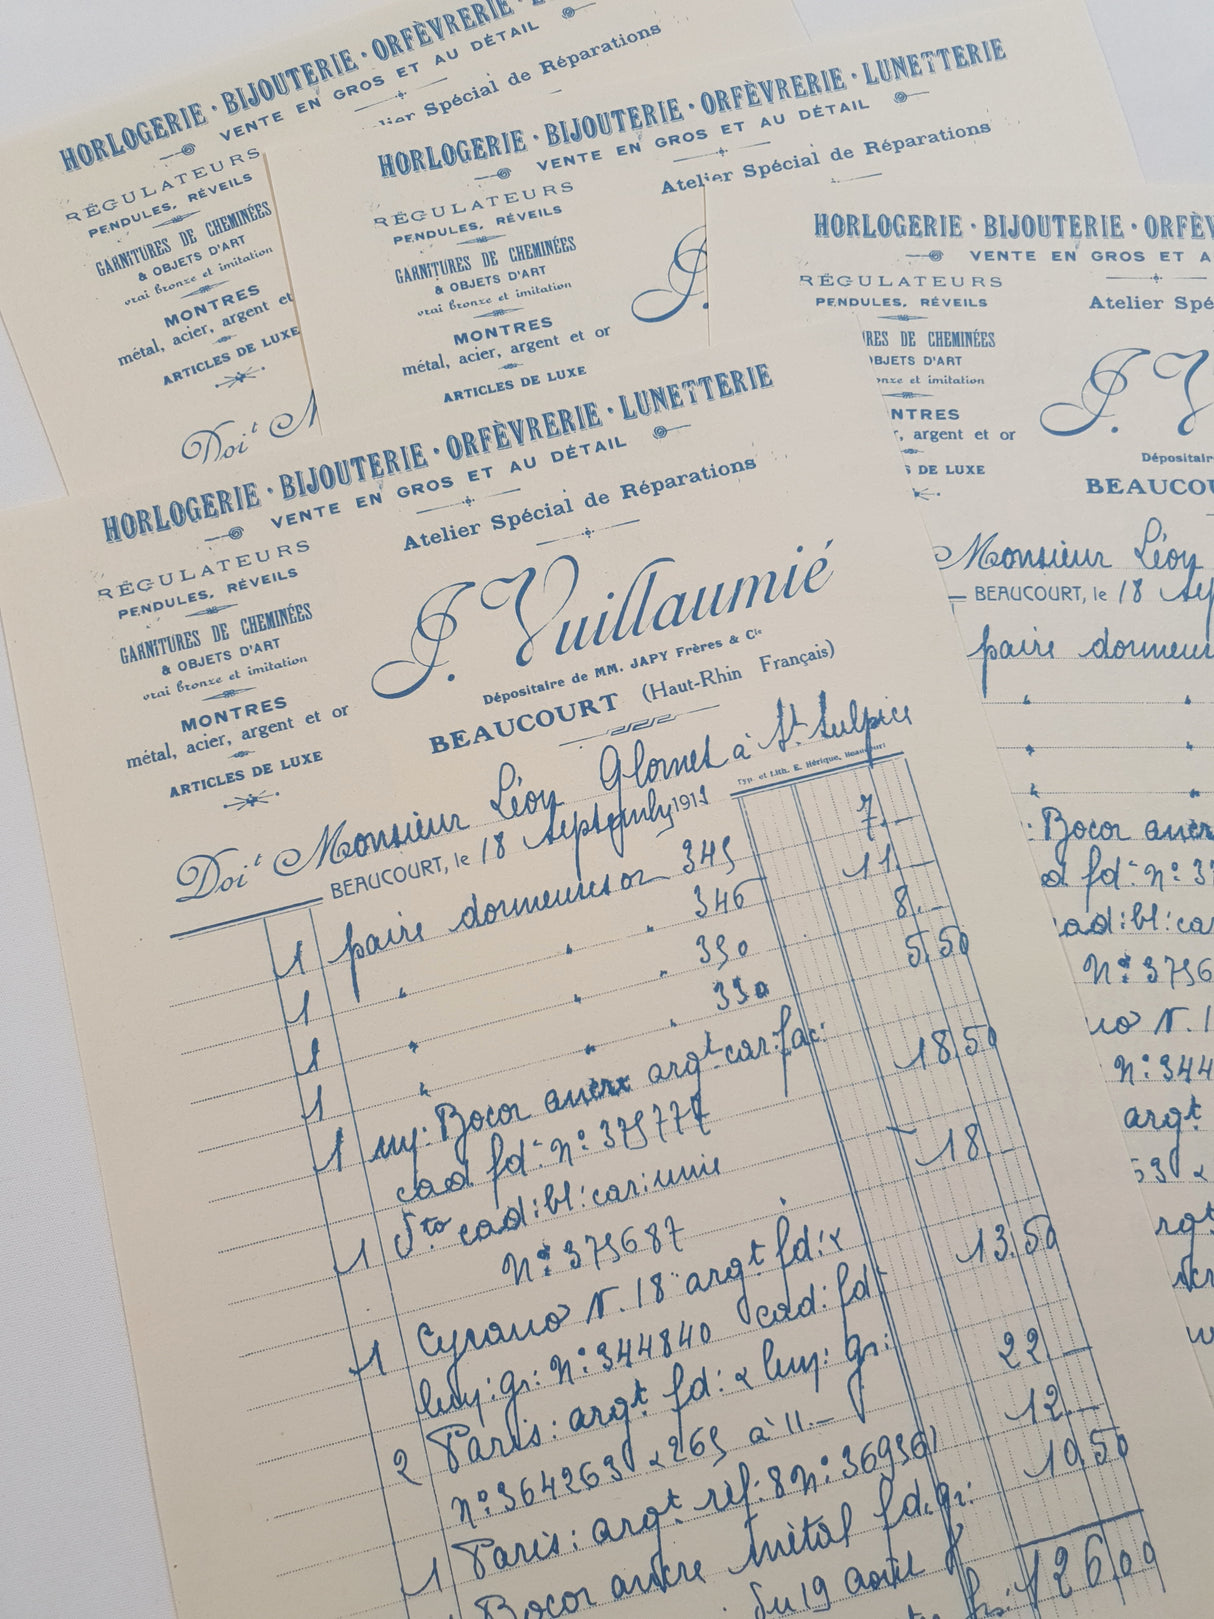 HORLOGERIE · BIJOUTERIE · ORFÈVRERIE ·
VENTE EN GROS ET AU DÉTAIL
Spécial de Réparations
RÉGULATEURS
PENDULES, RÉVEILS
GARNITURES DE CHEMINÉES
& OBJETS D'ART
vrai bronze et imitation
MONTRES
métal, acier, argent et
ARTICLES DE LUXE
Doit
HORLOGERIE · BIJOUTERIE · ORFÈVRERIE · LUNETTERIE
VENTE EN GROS ET AU DÉTAIL
Atelier Spécial de Réparations
RÉGULATEURS
PENDULES, RÉVEILS
GARNITURES DE CHEMINÉES
& OBJETS D'ART
vrai bronze et imitation
MONTRES
métal, acier, argent et or
ARTICLES DE LUXE
J.
HORLOGERIE · BIJOUTERIE · ORFÈV
VENTE EN GROS ET A
RÉGULATEURS
Atelier Spé
PENDULES, RÉVEILS
RES DE CHEMINÉES
OBJETS D'ART
onze et imitation
NTRES
, argent et or
DE LUXE
J. V
Dépositair
BEAUCOU
Monsieur Léon
BEAUCOURT, le 18 Sep
paire dormeus
" "
" "
" "
: Bocor ancre
d fd: No: 37
cad: bl: car
No: 3756
no N. 1
No: 344
argt
HORLOGERIE · BIJOUTERIE · ORFÈVRERIE · LUNETTERIE
VENTE EN GROS ET AU DÉTAIL
Atelier Spécial de Réparations
RÉGULATEURS
PENDULES, RÉVEILS
GARNITURES DE CHEMINÉES
& OBJETS D'ART
vrai bronze et imitation
MONTRES
métal, acier, argent et or
ARTICLES DE LUXE
J. Vuillaumié
Dépositaire de MM. JAPY Frères & Cie
BEAUCOURT (Haut-Rhin Français)
Typ. et Lith. E. Hérique, Beaucourt
Doit Monsieur Léon à St Sulpice
BEAUCOURT, le 18 1911
1 paire dormeuses or 345 7.–
1 " " " 346 11.–
1 " " " 350 8.–
1 " " 350 5.50
1 Bocor ancre argt car: fac:
cad fd: No: 375777 18.50
1 dto cad: bl: car: unie
No: 375687 18.–
1 Cyrano N. 18 argt fd: &
luy: gr: No: 344840 cad: fd: 13.50
2 Paris: argt fd: & luy: gr:
No: 364263 & 265 à 11.– 22.–
1 Paris: argt réf: 8 No: 369361 12.–
Bocor ancre métal fd. gr: 10.50
du 19 août
126.00